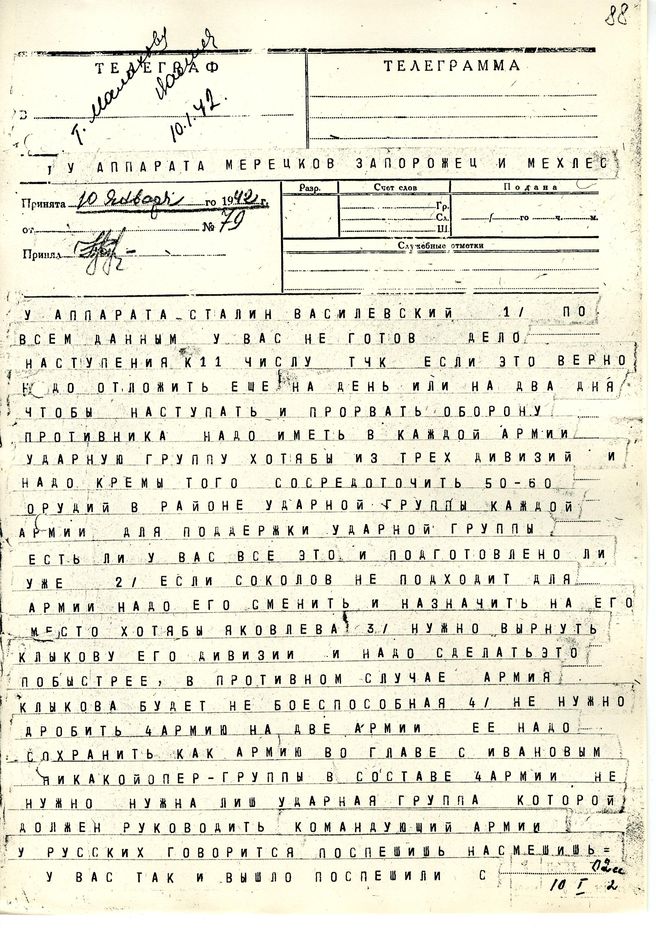 88
ТЕЛЕГРАФ ТЕЛЕГРАММА
10.1.42.
У АППАРАТА МЕРЕЦКОВ ЗАПОРОЖЕЦ И МЕХЛЕС
Разр. Счет слов Подана
Принята 10 Января го 1942 г.
Гр.
от № 79
Сл. / го ч. м.
Ш.
Принял
Служебные отметки
У АППАРАТА СТАЛИН ВАСИЛЕВСКИЙ 1/ ПО
ВСЕМ ДАННЫМ У ВАС НЕ ГОТОВ ДЕЛО
НАСТУПЕНИЯ К11 ЧИСЛУ ТЧК ЕСЛИ ЭТО ВЕРНО
НАДО ОТЛОЖИТЬ ЕЩЕ НА ДЕНЬ ИЛИ НА ДВА ДНЯ
ЧТОБЫ НАСТУПАТЬ И ПРОРВАТЬ ОБОРОНУ
ПРОТИВНИКА НАДО ИМЕТЬ В КАЖДОЙ АРМИИ
УДАРНУЮ ГРУППУ ХОТЯБЫ ИЗ ТРЕХ ДИВИЗИЙ И
НАДО КРЕМЫ ТОГО СОСРЕДОТОЧИТЬ 50-60
ОРУДИЙ В РАЙОНЕ УДАРНОЙ ГРУППЫ КАЖДОЙ
АРМИИ ДЛЯ ПОДДЕРЖКИ УДАРНОЙ ГРУППЫ
ЕСТЬ ЛИ У ВАС ВСЕ ЭТО И ПОДГОТОВЛЕНО ЛИ
УЖЕ 2/ ЕСЛИ СОКОЛОВ НЕ ПОДХОДИТ ДЛЯ
АРМИИ НАДО ЕГО СМЕНИТЬ И НАЗНАЧИТЬ НА ЕГО
МЕСТО ХОТЯБЫ ЯКОВЛЕВА 3/ НУЖНО ВЫРНУТЬ
КЛЫКОВУ ЕГО ДИВИЗИИ И НАДО СДЕЛАТЬЭТО
ПОБЫСТРЕЕ, В ПРОТИВНОМ СЛУЧАЕ АРМИЯ
КЛЫКОВА БУДЕТ НЕ БОЕСПОСОБНАЯ 4/ НЕ НУЖНО
ДРОБИТЬ 4АРМИЮ НА ДВЕ АРМИИ ЕЕ НАДО
СОХРАНИТЬ КАК АРМИЮ ВО ГЛАВЕ С ИВАНОВЫМ
НИКАКОЙОПЕР-ГРУППЫ В СОСТАВЕ 4АРМИИ НЕ
НУЖНО НУЖНА ЛИШ УДАРНАЯ ГРУППА КОТОРОЙ
ДОЛЖЕН РУКОВОДИТЬ КОМАНДУЮЩИЙ АРМИИ
У РУССКИХ ГОВОРИТСЯ ПОСПЕШИШЬ НАСМЕШИШЬ=
У ВАС ТАК И ВЫШЛО ПОСПЕШИЛИ С
10 I 2